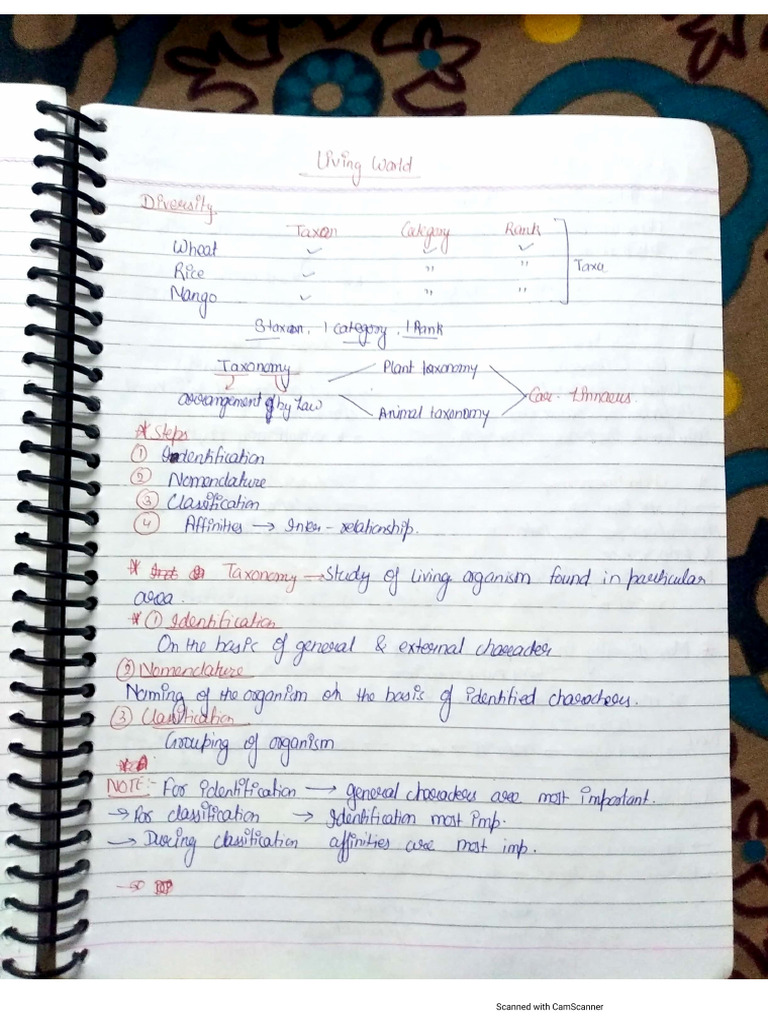 Living World
Diversity
Taxon Category Rank
Wheat ✓ ✓ ✓
Rice ✓ " "
Mango ✓ " "
Taxa
3 taxon, 1 category, 1 Rank
Taxonomy
Plant taxonomy
arrangement by Law
Animal taxonomy
Linnaeus.
* Steps
① Identification
② Nomenclature
③ Classification
④ Affinities → Inter-relationship.
* Taxonomy → Study of living organism found in particular
area.
* ① Identification
On the basic of general & external character
② Nomenclature
Naming of the organism on the basis of identified characters.
③ Classification
Grouping of organism
NOTE:- For identification → general characters are most important.
→ For classification → Identification most imp.
→ During classification affinities are most imp.
Scanned with CamScanner